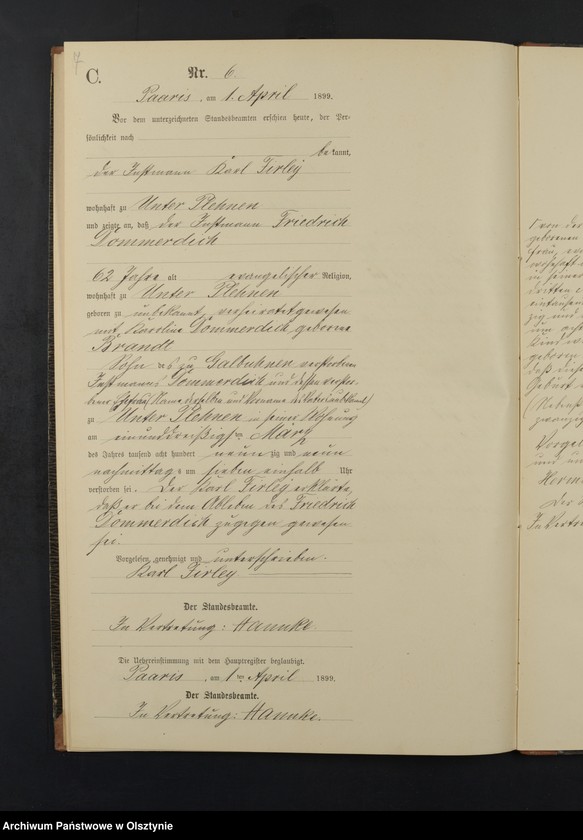 7
C.
Nr. 6
Paaris, am 1. April 1899.
Vor dem unterzeichneten Standesbeamten erschien heute, der Per-
sönlichkeit nach
be kannt,
der Instmann Karl Tirley
wohnhaft zu Unter Plehnen
und zeigte an, daß der Instmann Friedrich
Dommerdich
62 Jahre alt evangelischer Religion,
wohnhaft zu Unter Plehnen
geboren zu unbekannt, verheiratet gewesen
mit Karoline Dommerdich geborene
Brandt
Sohn des zu Galbuhnen verstorbenen
Instmanns Dommerdich und dessen verstor-
benen Ehefrau
zu Unter Plehnen in seiner Wohnung
am einunddreißigsten März
des Jahres tausend acht hundert neun zig und neun
nachmittags um sieben einhalb Uhr
verstorben sei. Der Karl Tirley erklärte,
daß er bei dem Ableben des Friedrich
Dommerdich zugegen gewesen
sei.
Vorgelesen, genehmigt und unterschrieben.
Karl Tirley
Der Standesbeamte.
In Vertretung: Hannke.
Die Uebereinstimmung mit dem Hauptregister beglaubigt.
Paaris, am 1ten April 1899.
Der Standesbeamte.
In Vertretung: Hannke.
Archiwum Państwowe w Olsztynie